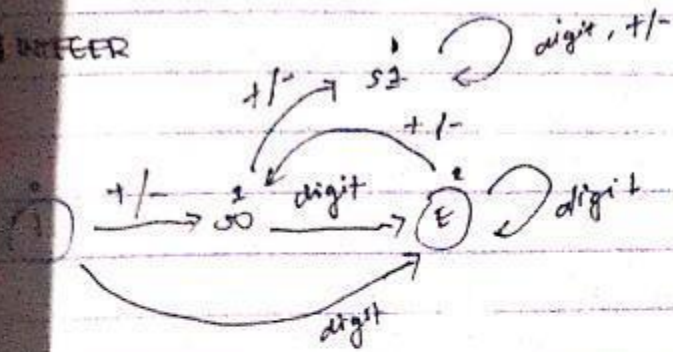 INTEGER
digit, +/-
+/-
SI
+/-
+/-
digit
E
digit
digit